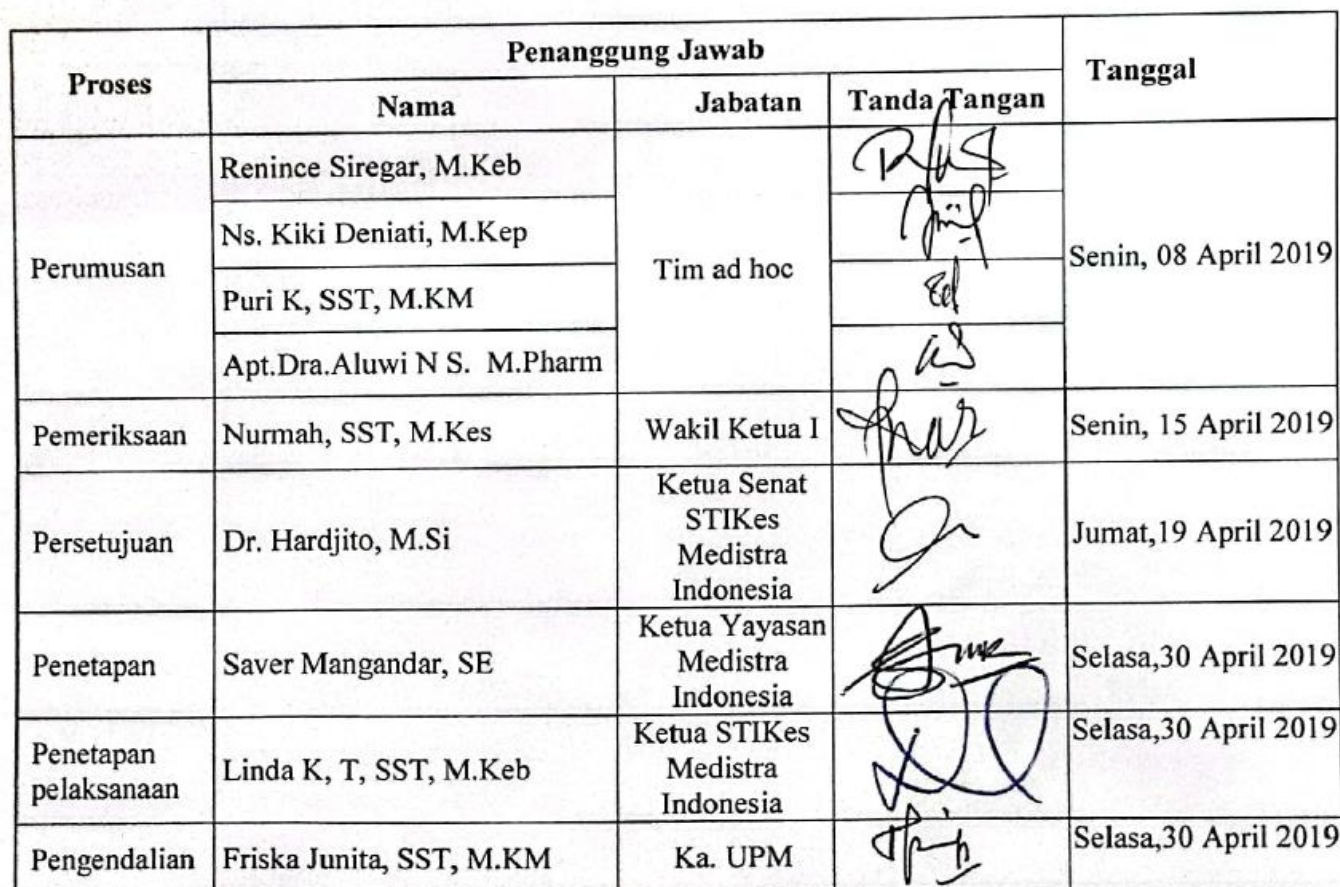 Proses
Penanggung Jawab
Tanggal
Nama
Jabatan
Tanda Tangan
Perumusan
Renince Siregar, M.Keb
Ns. Kiki Deniati, M.Kep
Puri K, SST, M.KM
Apt.Dra.Aluwi N S. M.Pharm
Tim ad hoc
Senin, 08 April 2019
Pemeriksaan
Nurmah, SST, M.Kes
Wakil Ketua I
Senin, 15 April 2019
Persetujuan
Dr. Hardjito, M.Si
Ketua Senat
STIKes
Medistra
Indonesia
Jumat,19 April 2019
Penetapan
Saver Mangandar, SE
Ketua Yayasan
Medistra
Indonesia
Selasa,30 April 2019
Penetapan
pelaksanaan
Linda K, T, SST, M.Keb
Ketua STIKes
Medistra
Indonesia
Selasa,30 April 2019
Pengendalian
Friska Junita, SST, M.KM
Ka. UPM
Selasa,30 April 2019